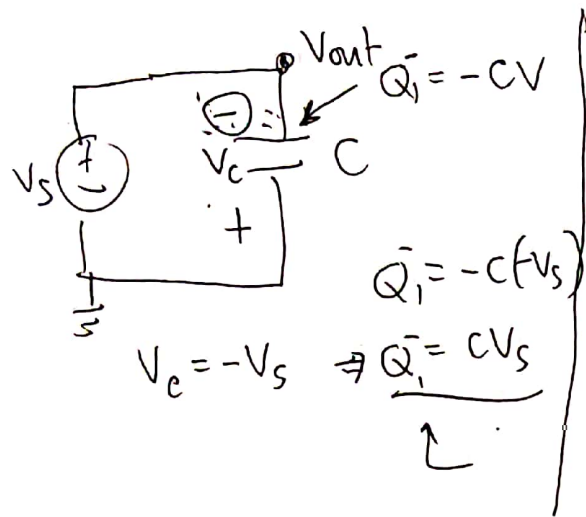 Vout
Q₁⁻ = -CV
⊖
Vs
+
-
Vc
C
+
Q₁⁻ = -C(-Vs)
Vc = -Vs ⇒ Q₁⁻ = CVs